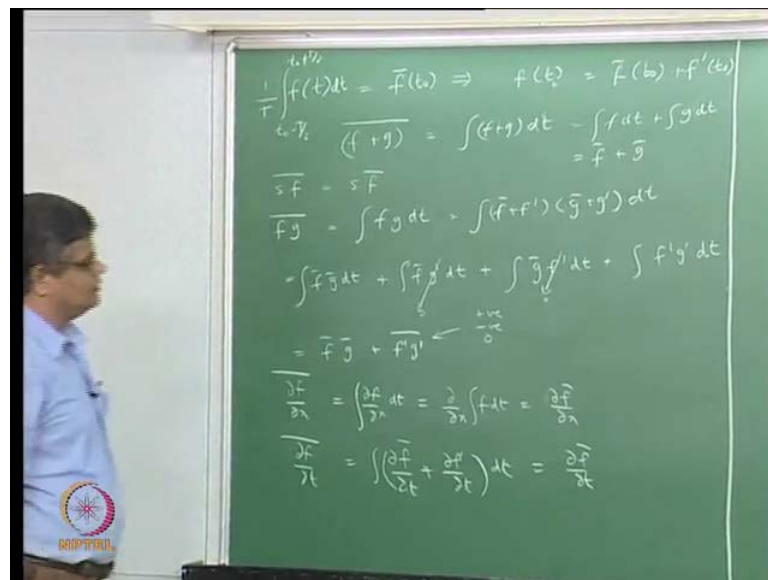 1/T ∫_{t₀-T/2}^{t₀+T/2} f(t)dt = f̄(t₀) ⇒ f(t₀) = f̄(t₀) + f'(t₀)
\overline{(f+g)} = ∫(f+g) dt = ∫f dt + ∫g dt
= f̄ + ḡ
\overline{sf} = s f̄
\overline{fg} = ∫ f g dt = ∫(f̄+f')(ḡ+g') dt
= ∫ f̄ ḡ dt + ∫ f̄ g' dt + ∫ ḡ f' dt + ∫ f' g' dt
0 0
= f̄ ḡ + \overline{f'g'} ← +ve
-ve
0
\overline{∂f/∂x} = ∫ ∂f/∂x dt = ∂/∂x ∫ f dt = ∂f̄/∂x
\overline{∂f/∂t} = ∫(∂f̄/∂t + ∂f'/∂t) dt = ∂f̄/∂t
NPTEL